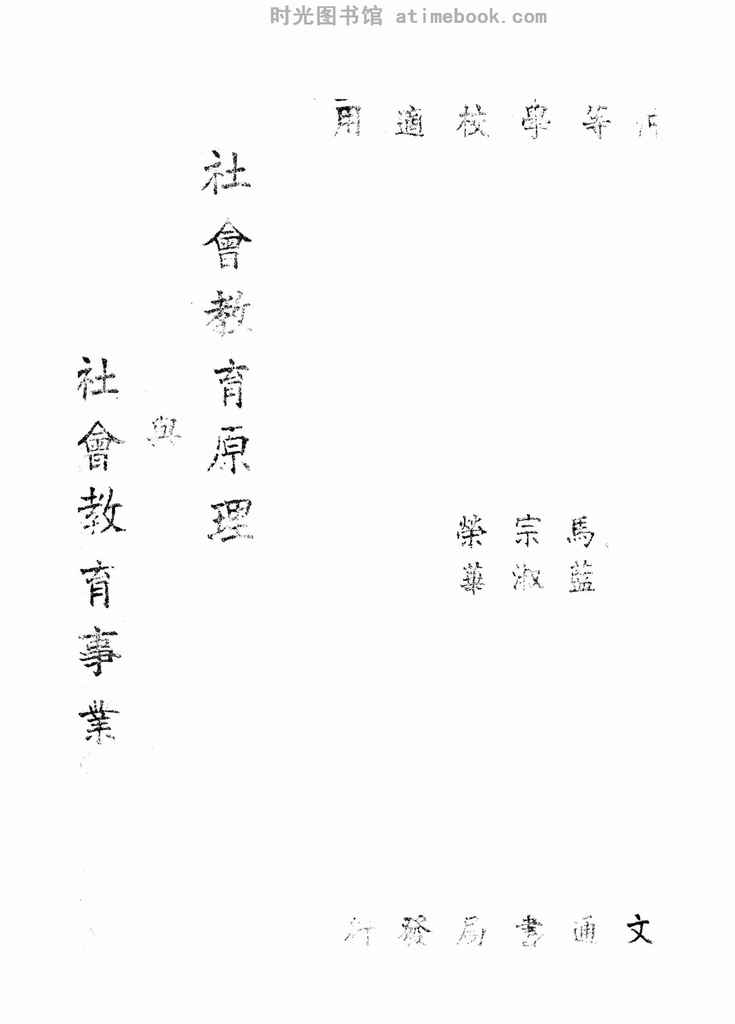 时光图书馆 atimebook.com
等學校適用
馬宗榮
藍淑華
社會教育原理
與
社會教育事業
文通書局發行